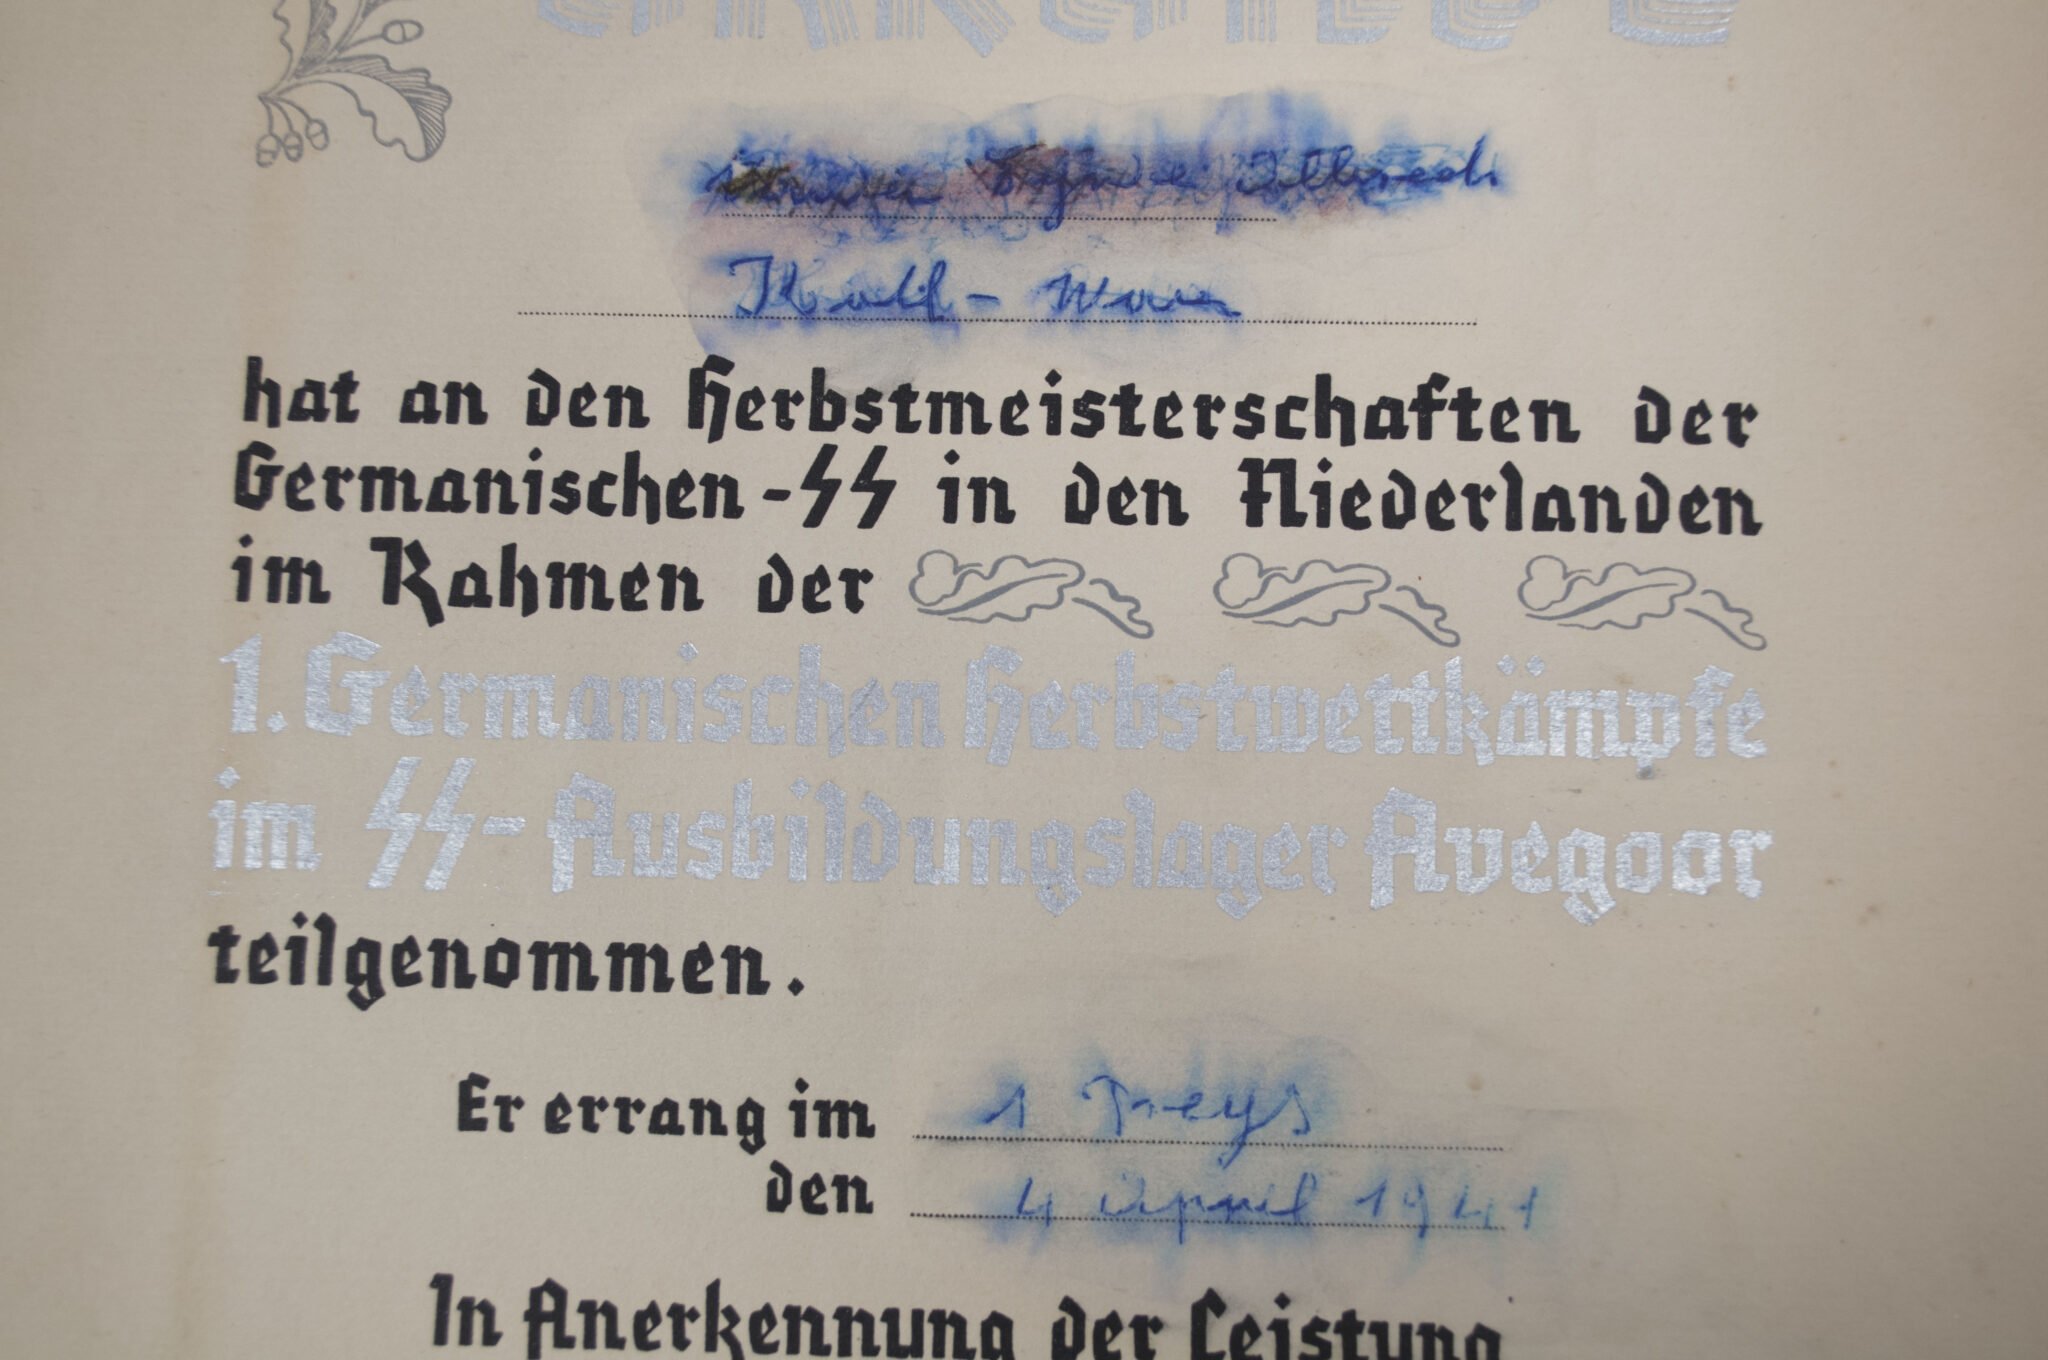 URKUNDE
hat an den Herbstmeisterschaften der
Germanischen-SS in den Niederlanden
im Rahmen der
1. Germanischen Herbstwettkämpfe
im SS-Ausbildungslager Avegoor
teilgenommen.
Er errang im 1
den 4 April 1941
In Anerkennung der Leistung